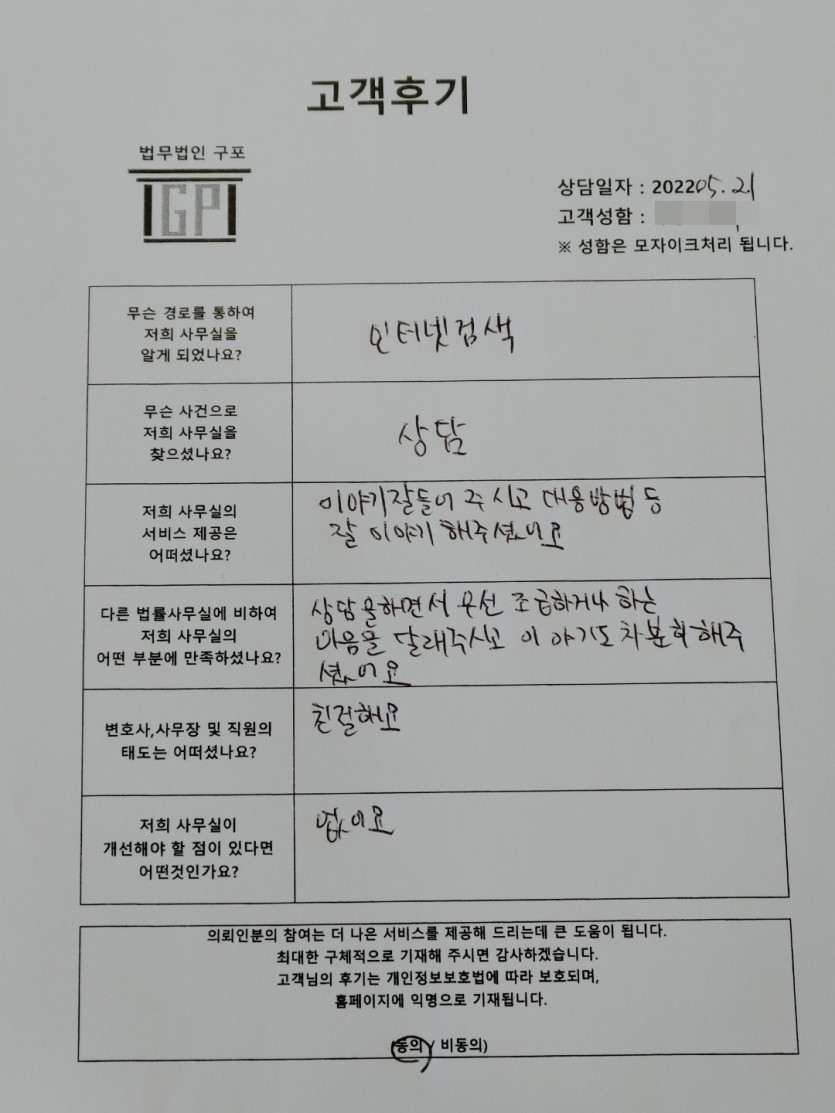 고객후기
법무법인 구포
GP
상담일자 : 202205.21
고객성함 :
※ 성함은 모자이크처리 됩니다.
무슨 경로를 통하여
저희 사무실을
알게 되었나요?
인터넷검색
무슨 사건으로
저희 사무실을
찾으셨나요?
상담
저희 사무실의
서비스 제공은
어떠셨나요?
이야기잘들어 주시고 대응방법 등
잘 이야기 해주셨어요
다른 법률사무실에 비하여
저희 사무실의
어떤 부분에 만족하셨나요?
상담을하면서 우선 조급하거나 하는
마음을 달래주시고 이야기도 차분히 해주
셨어요
변호사,사무장 및 직원의
태도는 어떠셨나요?
친절해요
저희 사무실이
개선해야 할 점이 있다면
어떤것인가요?
없어요
의뢰인분의 참여는 더 나은 서비스를 제공해 드리는데 큰 도움이 됩니다.
최대한 구체적으로 기재해 주시면 감사하겠습니다.
고객님의 후기는 개인정보보호법에 따라 보호되며,
홈페이지에 익명으로 기재됩니다.
(동의/ 비동의)